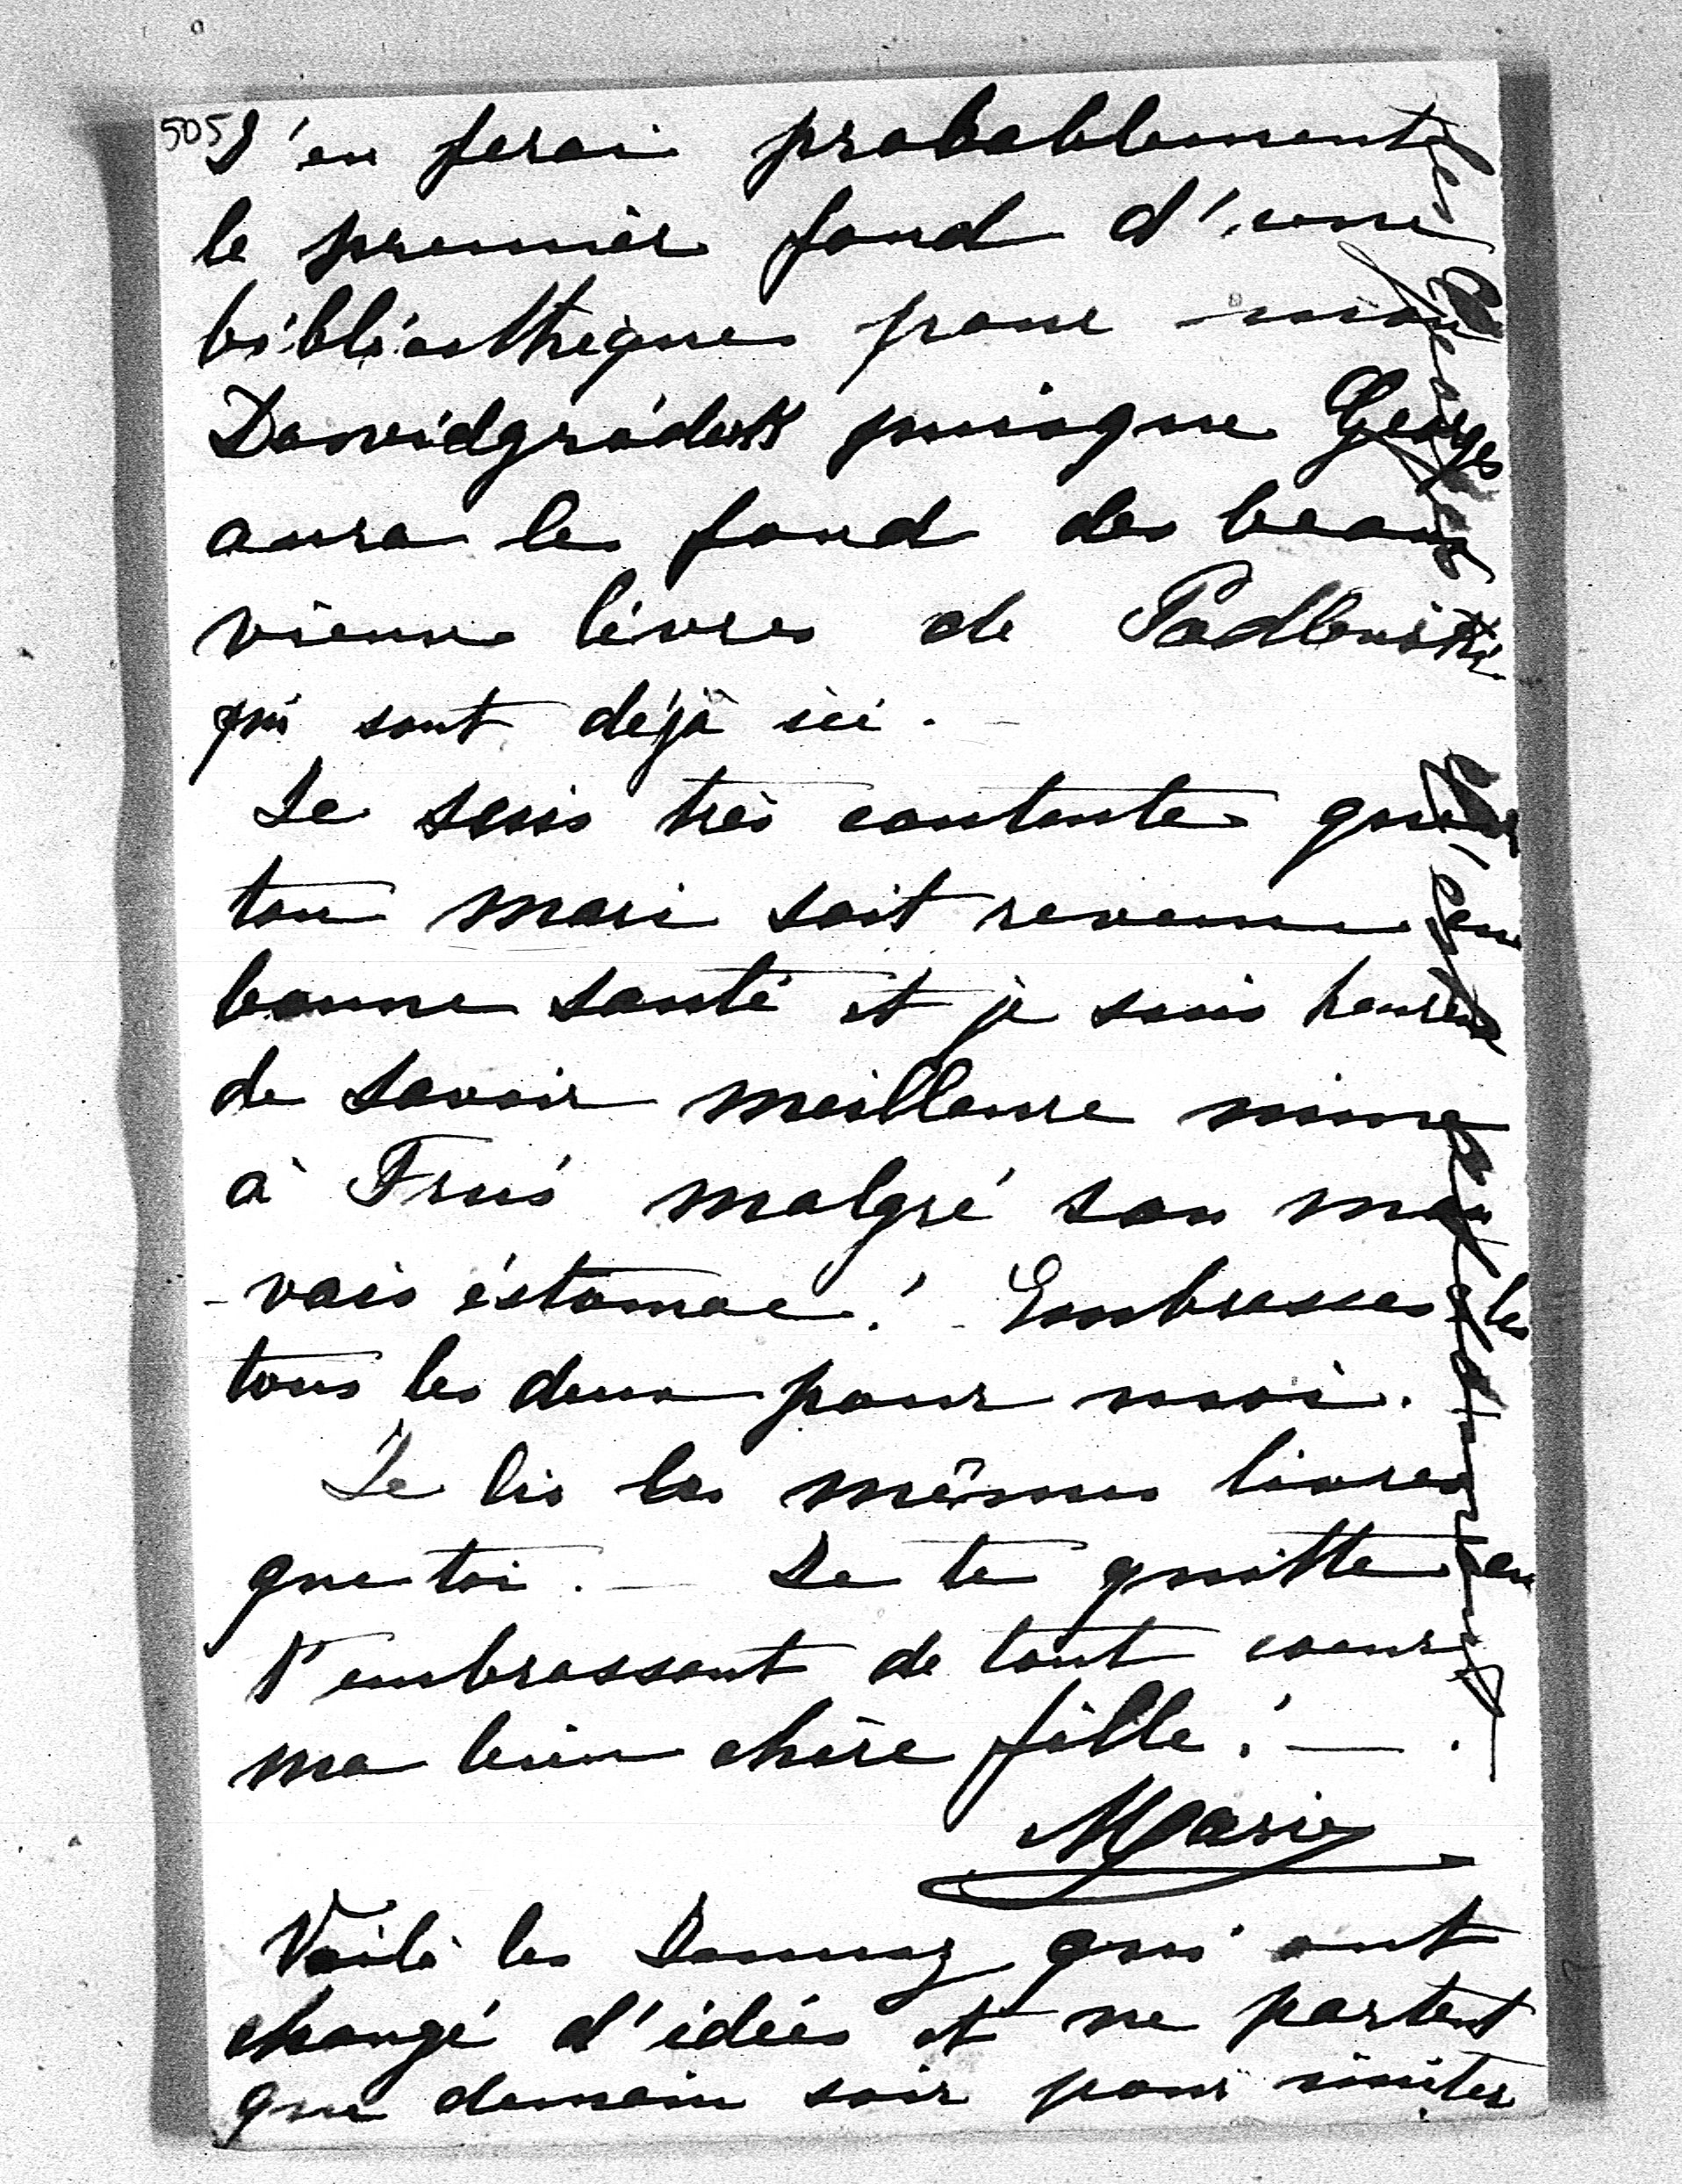 505
J'en ferai probablement
le premier fond d'une
bibliothèque pour mon
Dawidgródek puisque Georges
aura le fond des beaux
vieux livres de
qui sont déjà ici. -
Je suis très contente que
ton mari soit revenu en
bonne santé et je suis heureuse
de savoir meilleure mine
à malgré son mau
- vais éstomac! Embrasses les
tous les deux pour moi.
Je lis les mêmes livres
que toi. — Je te quitte en
t'embrassant de tout coeur
ma bien chère fille! — .
Marie
Voilà les qui ont
changé d'idées et ne partent
que demain soir pour visiter